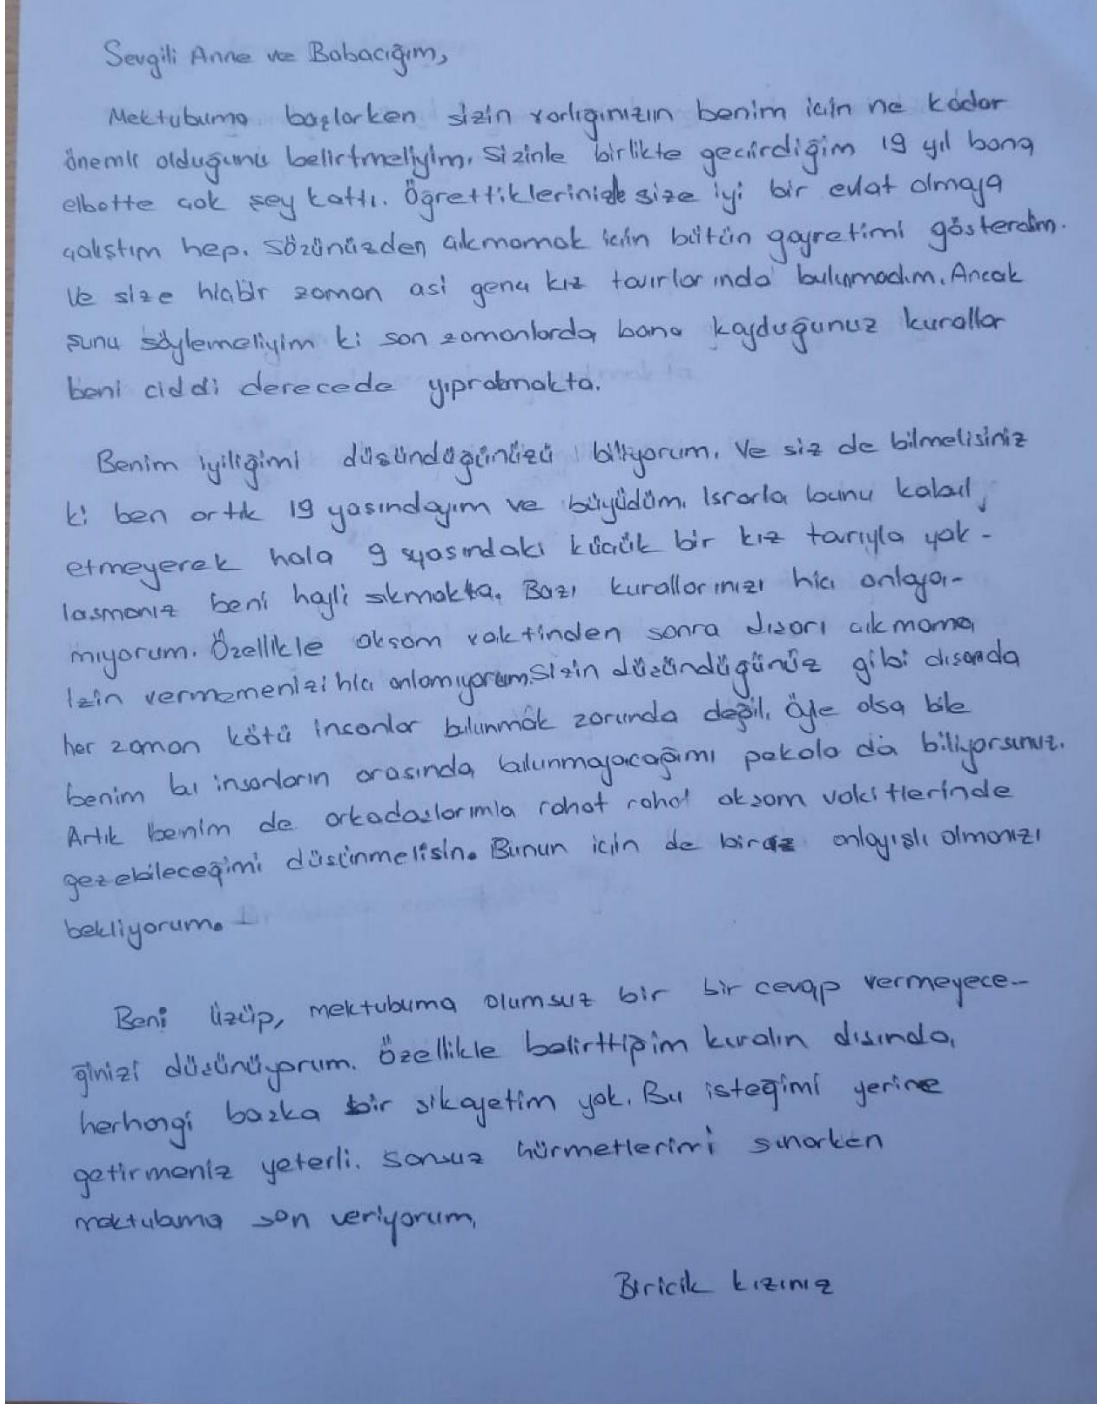 Sevgili Anne ve Babacığım,
Mektubuma başlarken sizin varlığınızın benim için ne kadar
önemli olduğunu belirtmeliyim. Sizinle birlikte geçirdiğim 19 yıl bana
elbette çok şey kattı. Öğrettiklerinizle size iyi bir evlat olmaya
çalıştım hep. Sözünüzden çıkmamak için bütün gayretimi gösterdim.
Ve size hiçbir zaman asi genç kız tavırlarında bulunmadım. Ancak
şunu söylemeliyim ki son zamanlarda bana koyduğunuz kurallar
beni ciddi derecede yıpratmakta.
Benim iyiliğimi düşündüğünüzü biliyorum. Ve siz de bilmelisiniz
ki ben artık 19 yaşındayım ve büyüdüm. Israrla bunu kabul
etmeyerek hala 9 yaşındaki küçük bir kız tavrıyla yak-
laşmanız beni hayli sıkmakta. Bazı kurallarınızı hiç anlaya-
mıyorum. Özellikle akşam vaktinden sonra dışarı çıkmama
izin vermemenizi hiç anlamıyorum. Sizin düşündüğünüz gibi dışarıda
her zaman kötü insanlar bulunmak zorunda değil. Öyle olsa bile
benim bu insanların arasında bulunmayacağımı pekala da biliyorsunuz.
Artık benim de arkadaşlarımla rahat rahat akşam vakitlerinde
gezebileceğimi düşünmelisin. Bunun için de biraz anlayışlı olmanızı
bekliyorum.
Beni üzüp, mektubuma olumsuz bir bir cevap vermeyece-
ğinizi düşünüyorum. Özellikle belirttiğim kuralın dışında,
herhangi başka bir şikayetim yok. Bu isteğimi yerine
getirmeniz yeterli. Sonsuz hürmetlerimi sunarken
mektubuma son veriyorum.
Biricik kızınız